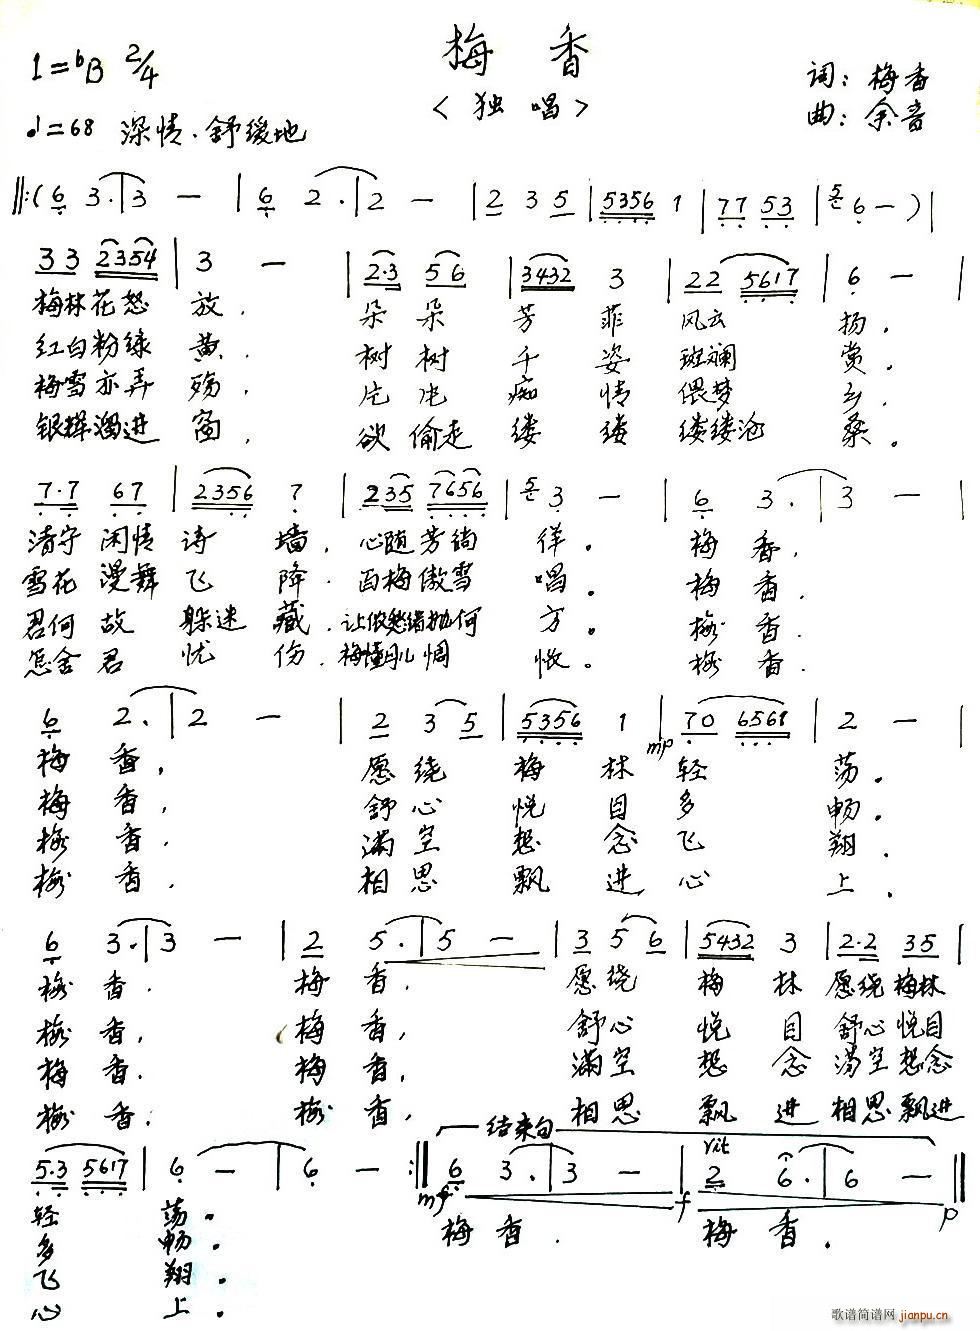 梅香
1=♭B 2/4
<独唱>
词：梅香
曲：余音
♩=68 深情.舒缓地
‖:(6 3.|3 — |6 2.|2 — |2 3 5|5356 1|77 53|5 6 —)|
33 2354|3 — |2·3 56|3432 3|22 5617|6 — |
梅林花怒放. 朵朵芳菲风云扬.
红白粉绿黄. 树树千姿斑斓赏.
梅雪亦弄殇. 片片痴情偎梦乡.
银辉溜进窗. 欲偷走缕缕缕缕沧桑.
7·7 67|2356 7|235 7656|5 3 — |6 3.|3 — |
清守闲情诗墙. 心随芳徜徉. 梅香.
雪花漫舞飞降. 百梅傲雪唱. 梅香.
君何故躲迷藏. 让侬愁绪抛何方. 梅香.
怎舍君忧伤. 梅懂 惆怅. 梅香.
6 2.|2 — |2 35|5356 1|mp 70 6561|2 — |
梅香, 愿绕梅林轻荡.
梅香, 舒心悦目多畅.
梅香. 满空想念飞翔.
梅香. 相思飘进心上.
6 3.|3 — |2 5.|5 — |3 56|5432 3|2·2 35|
梅香. 梅香. 愿绕梅林愿绕梅林
梅香, 梅香, 舒心悦目舒心悦目
梅香. 梅香, 满空想念满空想念
梅香. 梅香, 相思飘进相思飘进
结束句
rit
5·3 5617|6 — |6 — :‖6 3.|3 — |2 6.|6 — ‖
mp f p
轻荡. 梅香. 梅香.
多畅.
飞翔.
心上.
歌谱简谱网
jianpu.cn